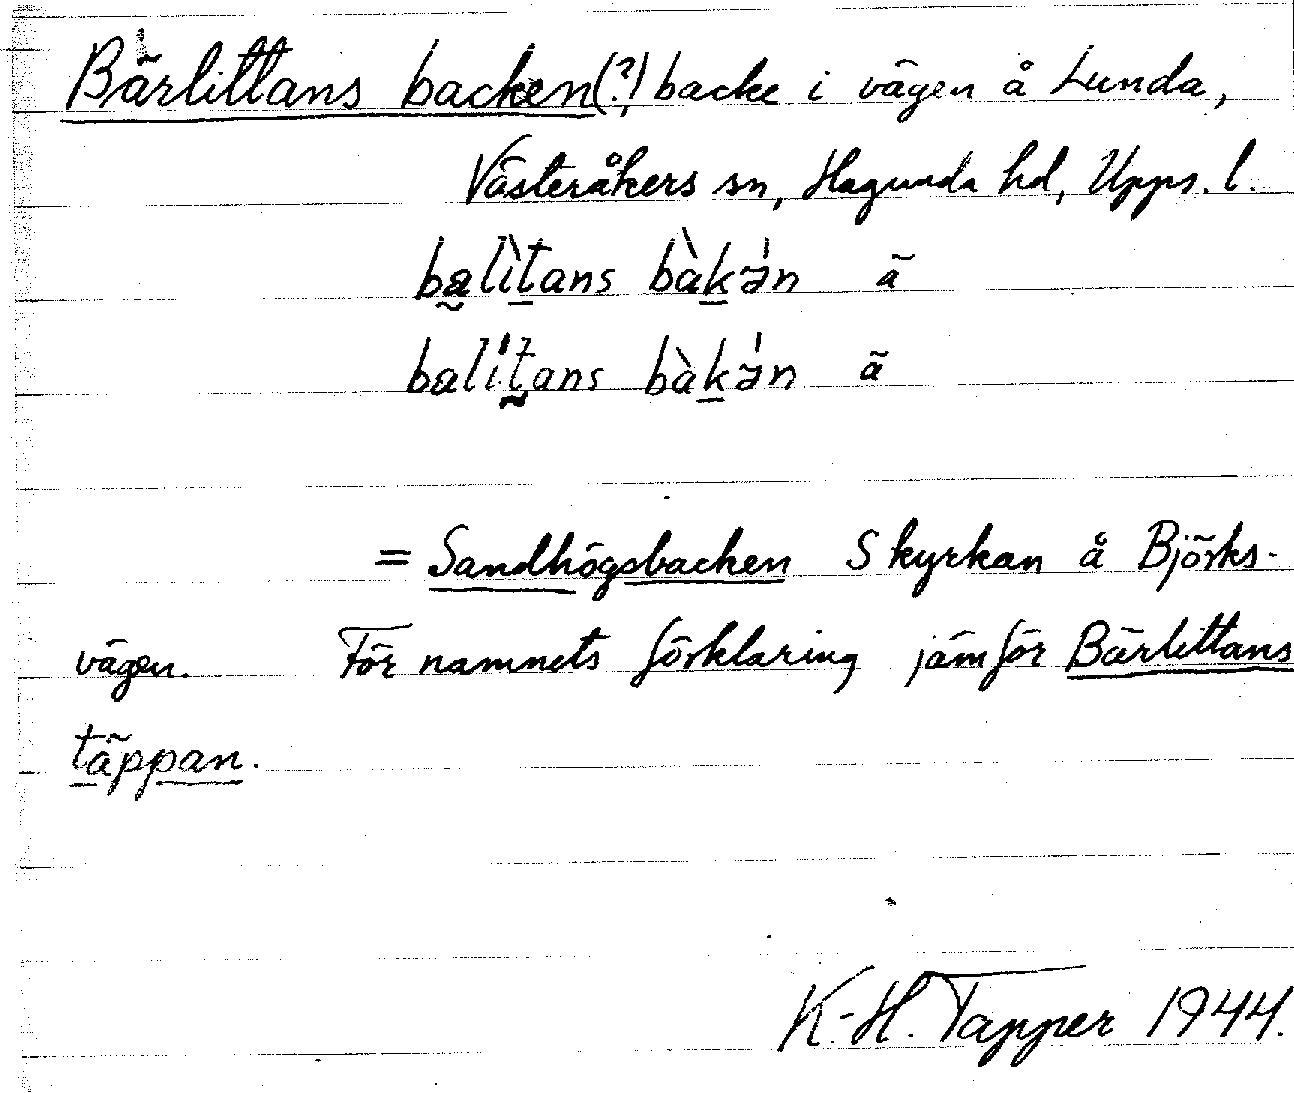 Bärlittans backen(?) backe i vägen å Lunda,
Västeråkers sn, Hagunda hd, Upps. l.
balìtans bàkə́n ä
balítans bàkə́n ä
= Sandhögsbacken S kyrkan å Björks-
vägen. För namnets förklaring jämför Bärlittans
täppan.
K-H. Tapper 1944.